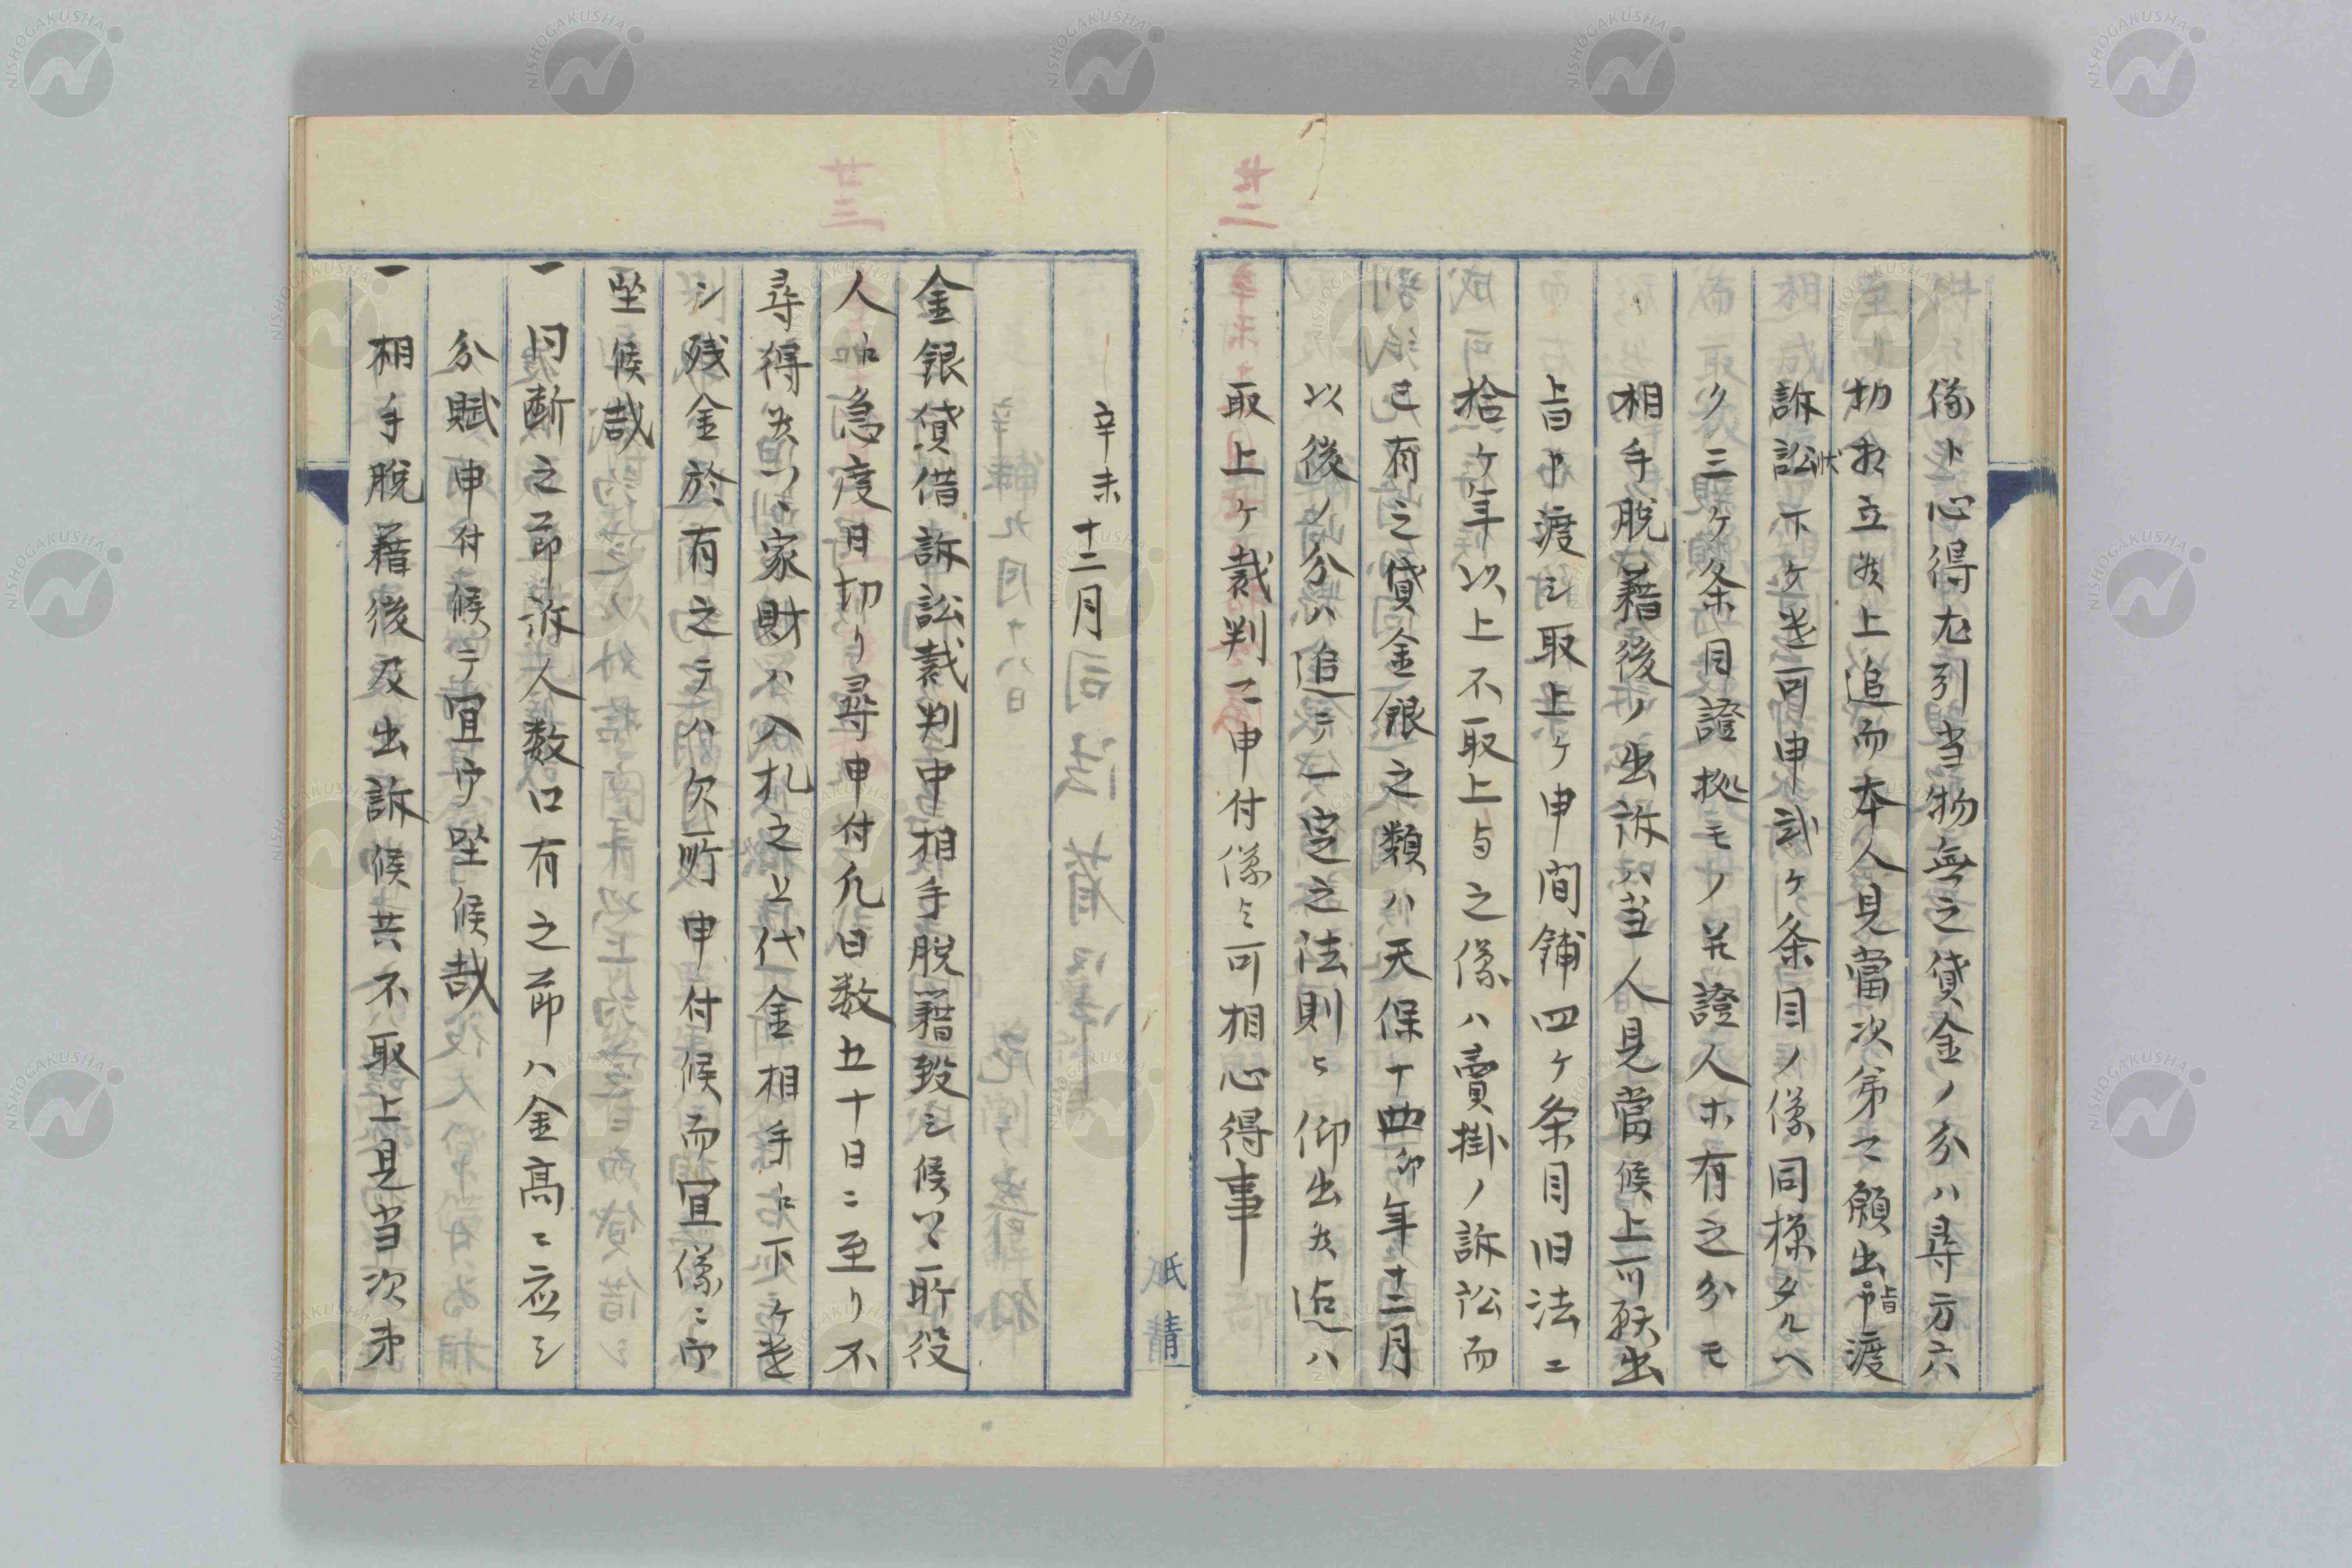 儀ト心得尤引当物無之貸金ノ分ハ尋方六
切相立候上追而本人見當次第ニ願出旨申渡
訴訟状下ケ遣可申試ケ条目ノ儀同様タルヘ
ク三ケ条目證拠モノ並證人ホ有之分モ
相手脱籍後ノ出訴ハ当人見當候上可訴出
旨申渡シ取上ケ申間舗四ケ条目旧法ニ
拾ケ年以上不取上与之儀ハ賣掛ノ訴訟而
已有之貸金銀之類ハ天保十四卯年十二月
以後ノ分ハ追テ一定之法則ヲ仰出候迄ハ
取上ケ裁判ニ申付儀与可相心得事
廿二
紙清
辛未十二月
金銀貸借訴訟裁判中相手脱籍致シ候ハヽ所役
人江急度月切リ尋申付凡日数五十日ニ至リ不
尋得候ハヽ家財ハ入札之上代金相手江下ケ遣
シ残金於有之テハ欠所申付候而宜儀ニ御
坐候哉
一 同断之節訴人数口有之節ハ金高ニ応シ
分賦申付候テ宜御坐候哉
一 相手脱籍後及出訴候共不取上見当次第
廿三